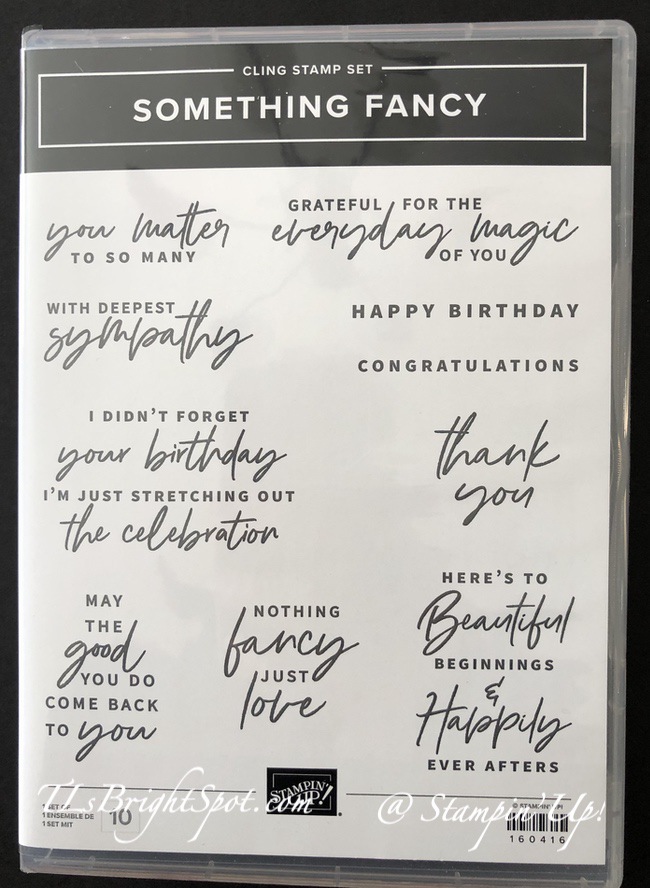 CLING STAMP SET
SOMETHING FANCY
you matter
TO SO MANY
GRATEFUL FOR THE
everyday magic
OF YOU
WITH DEEPEST
sympathy
HAPPY BIRTHDAY
CONGRATULATIONS
I DIDN'T FORGET
your birthday
I'M JUST STRETCHING OUT
the celebration
thank
you
MAY
THE
good
YOU DO
COME BACK
TO you
NOTHING
fancy
JUST
love
HERE'S TO
Beautiful
BEGINNINGS
&
Happily
EVER AFTERS
1 SET OF
1 ENSEMBLE DE
1 SET MIT
10
STAMPIN' UP!
®
© STAMPIN' UP!
160416
TLsBrightSpot.com
@ Stampin' Up!